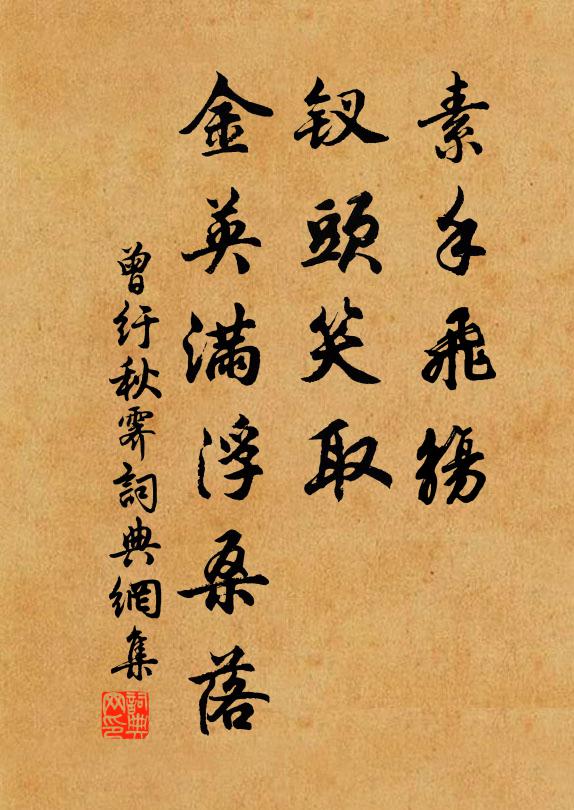 素手飛觴
釵頭笑取
金英滿浮桑落
曾紆秋霽詞典網集
詞典網印